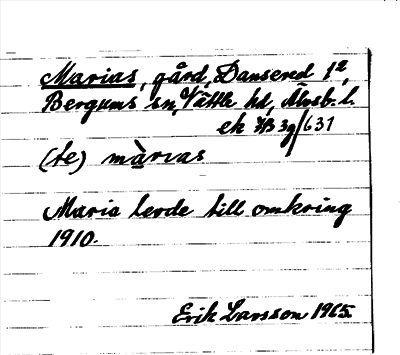 Marias, gård, Dansered 1²,
Bergums sn, Vättle hd, Älvsb. l.
ek 7B 3g/631
(te) màrias
Maria levde till omkring
1910.
Erik Larsson 1965.